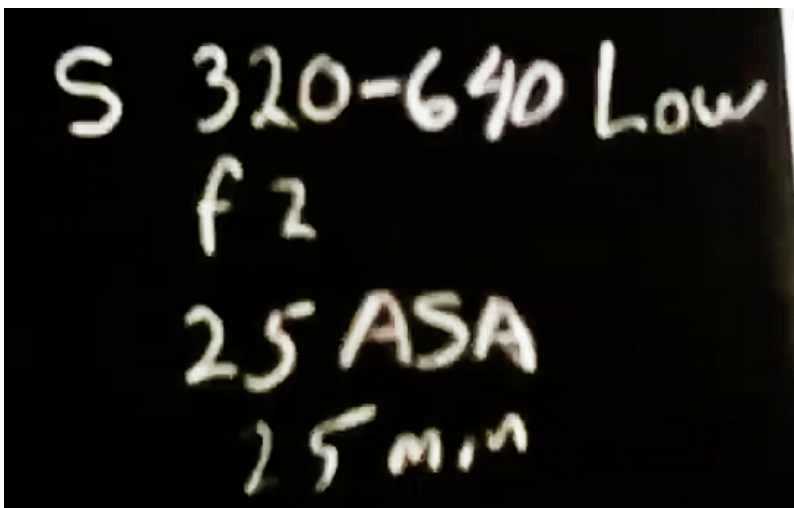 S 320-640 Low
f2
25 ASA
25 min